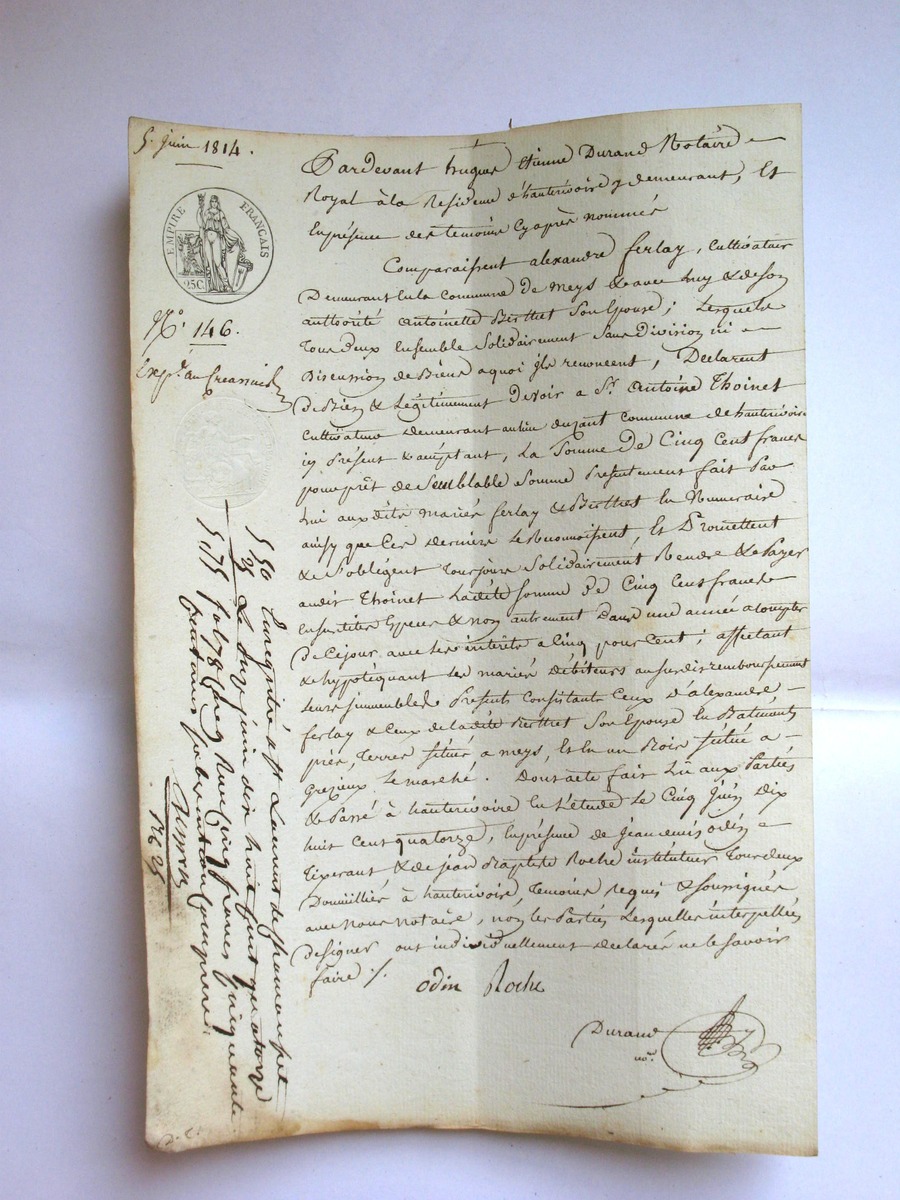 5. juin 1814.
EMPIRE FRANÇAIS
25C
N.º 146.
Exp.é au Creancier
Pardevant hugues Etienne Durand Notaire
Royal à la Residence d'hauterivoire y demeurant, Et
En présence des temoins Cy après nommés
Comparaissent alexandre ferlay, Cultivateur
Demeurant En la Commune De meys & avec luy & de son
authorité Antoinette Berthet Son Epouse; Lesquels
Tous deux Ensemble Solidairement Sans Division ni
Discussion de Biens a quoi ils renoncent, Declarent
De Bien & Légitimement Devoir a S.r Antoine Thoinet
Cultivateur demeurant au lieu du commune de hauterivoire
icy Présent & acceptant, La Somme De Cinq Cent francs
pour prêt de Semblable Somme Présentement fait Par
lui aux dits mariés ferlay & Berthet En Numeraire
ainsy que Ces derniers Le Reconnoissent, Et Promettent
& S'obligent Toujours Solidairement Rendre & Payer
audit Thoinet Ladite Somme De Cinq Cent francs
En Espèces & non autrement Dans une année a Compter
De Cejour avec les interêts a Cinq pour Cent; affectant
& hypotéquant les mariés Débiteurs au susdit remboursement
Leurs immeubles Presents Consistants Ceux D'alexandre
ferlay & Ceux de la dite Berthet Son Epouse En Batiments
prés, Terres Situés a meys, Et En un Bois Situé a
Grezieux Le marché. Dont acte fait Lu aux Parties
& Passé à hauterivoire En L'étude Le Cinq Juin Dix
huit Cent quatorze, En présence de Jean denis odin
Tixerant & de Jean Baptiste Roche instituteur Tous deux
Domiciliés à hauterivoire, Temoins requis & Soussignés
avec Nous notaire, non les Parties Lesquelles interpellées
de signer ont individuellement declaré ne le Savoir
faire ./.
odin Roche
Durand
no.re
Enregistré à S.t Laurent de chamousset
Le juin dix huit Cent quatorze
fol. 78 Reçu Cinq francs Cinquante
Centimes Subvention Comprise